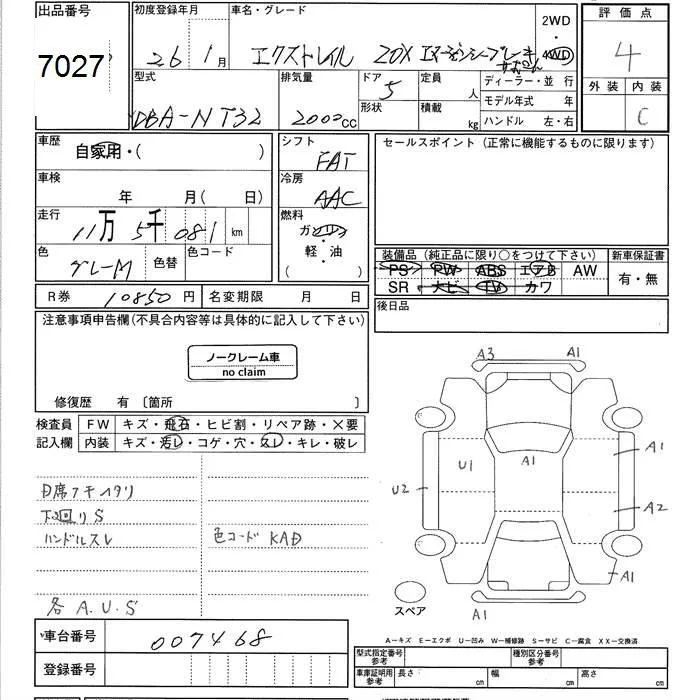 出品番号 初度登録年月 車名・グレード 2WD 評価点
7027 26 1月 エクストレイル 20X エマージェンシーブレーキ 4WD 4
型式 排気量 ドア 5 定員 人 ディーラー・並行 外装 内装
DBA-NT32 2000cc 形状 積載 kg モデル年式 年 C
ハンドル 左・右
車歴 自家用・( ) シフト FAT セールスポイント(正常に機能するものに限ります)
車検 年 月( 日) 冷房 AAC
走行 11万5千081km 燃料 ガソリン
色 グレーM 色替 色コード 軽・油 ( )
装備品(純正品に限り○をつけて下さい) 新車保証書
PS PW ABS エアB AW 有・無
SR ナビ TV カワ
R券 10850円 名変期限 月 日 後日品
注意事項申告欄(不具合内容等は具体的に記入して下さい)
ノークレーム車
no claim
修復歴 有 〔箇所 〕
検査員 FW キズ・飛石・ヒビ割・リペア跡・×要
記入欄 内装 キズ・汚レ・コゲ・穴・スレ・キレ・破レ
下廻りS
ハンドルスレ 色コード KAD
各 A.U.S
A3 A1
U1 A1 A1
U2 A2
A1
スペア A1
車台番号 007468
A-キズ E-エクボ U-凹み W-補修跡 S-サビ C-腐食 XX-交換済
登録番号 型式指定番号 参考 種別区分番号 参考
車庫証明用 参考 長さ cm 幅 cm 高さ cm